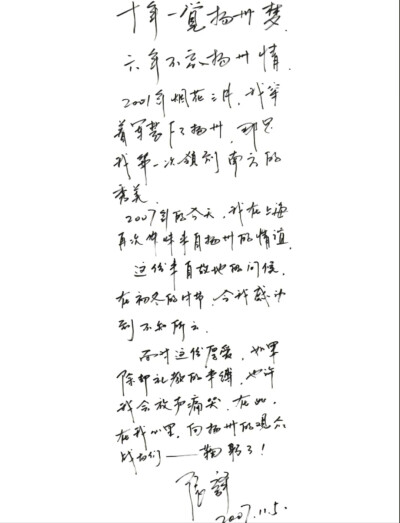 十年一觉扬州梦
六年不忘扬州情
2001年烟花三月，我穿
着军装下了扬州，那是
我第一次领到南方的
秀美。
2007年的今天，我在上海
再次体味来自扬州的情谊
这份来自故地的问候，
在初冬的时节，令我感动
到不知所云。
面对这份厚爱，如果
除却礼教的束缚，也许
我会放声痛哭。在此，
在我心里，向扬州的观众
战友们——鞠躬了！
2007.11.5.